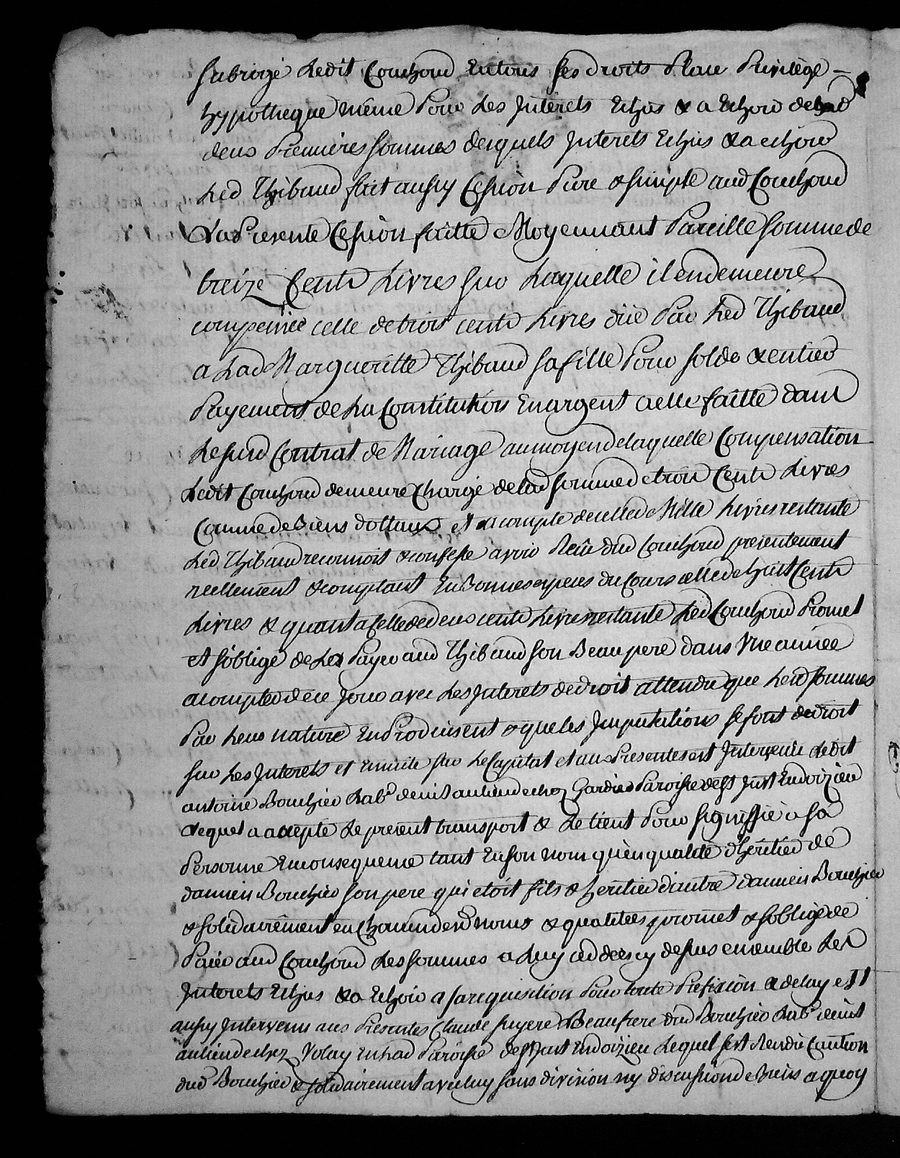 subrogé Ledit Couchoud En tous ses droits Place Privilège
hypotheque même Pour Les Interets Echus & a Echoir desd
deux Premieres sommes desquels Interets Echus & a echoir
Led Thibaud fait aussy Cession Pure & simple aud Couchoud
La Presente Cession faitte Moyennant Pareille somme de
treize Cents Livres sur Laquelle il en demeure
compensée celle de trois cents Livres düe Par Led Thibaud
a Lad Margueritte Thibaud sa fille Pour solde & entier
Payement de La Constitution En argent a elle faitte dans
Le susd Contrat de Mariage au moyen de laquelle Compensation
Ledit Couchoud demeure Chargé de lad somme de trois Cents Livres
Comme de Biens dottaux Et a compte de celle de Mille Livres restante
Led Thibaud reconnoit & confesse avoir Reçû dud Couchoud presentement
reellement & comptant En Bonnes especes du Cours celle de huit Cents
Livres & quant a Celle de deux cents Livres restante Led Couchoud Promet
Et s'oblige de Les Payer aud Thibaud son Beaupere dans Une année
a compter de ce Jour avec Les Interets de droit attendu que Lesd sommes
Par Leur nature En Produisent & que les Imputations se font de droit
sur Les Interets Et Ensuite sur Le Capital et aux Presentes est Intervenu Ledit
antoine Bouchier Labr. demt au lieu de chez Gardier Paroisse de St Just En doizieu
Lequel a accepté Le present transport & Le tient Pour signiffié a sa
Personne En consequence tant En son nom qu'en qualité d'héritier de
damien Bouchier son pere qui etoit fils & heritier d'autre damien Bouchier
& solidairement en Chacun desd noms & qualitées promet & s'oblige de
Païer aud Couchoud Les sommes a Luy cedées cy dessus ensemble Les
Interets Echus & a Echoir a sa requisition Pour toute Prefixion & delay est
aussy Intervenu aux Presentes Claude Beaufrere dud Bouchier Labr. demt
au lieu de chez Volay En lad Paroisse de St Just En doizieu Lequel s'est Rendû Caution
dud Bouchier & solidairement avec luy sans division ny discussion de Biens a quoy